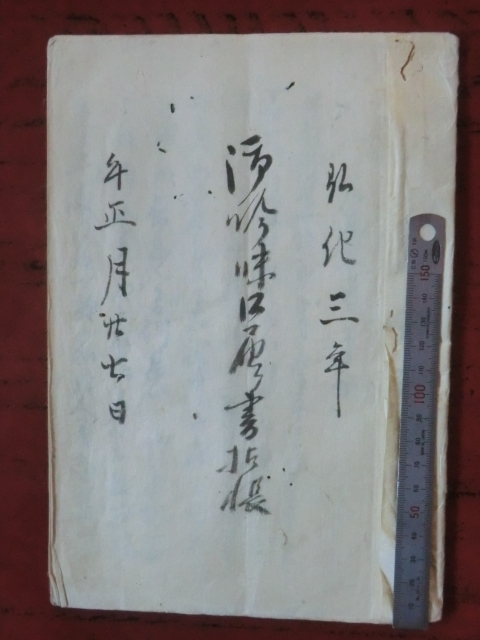 弘化三年
酒吟味口届書控帳
午正月廿七日
150
100
50